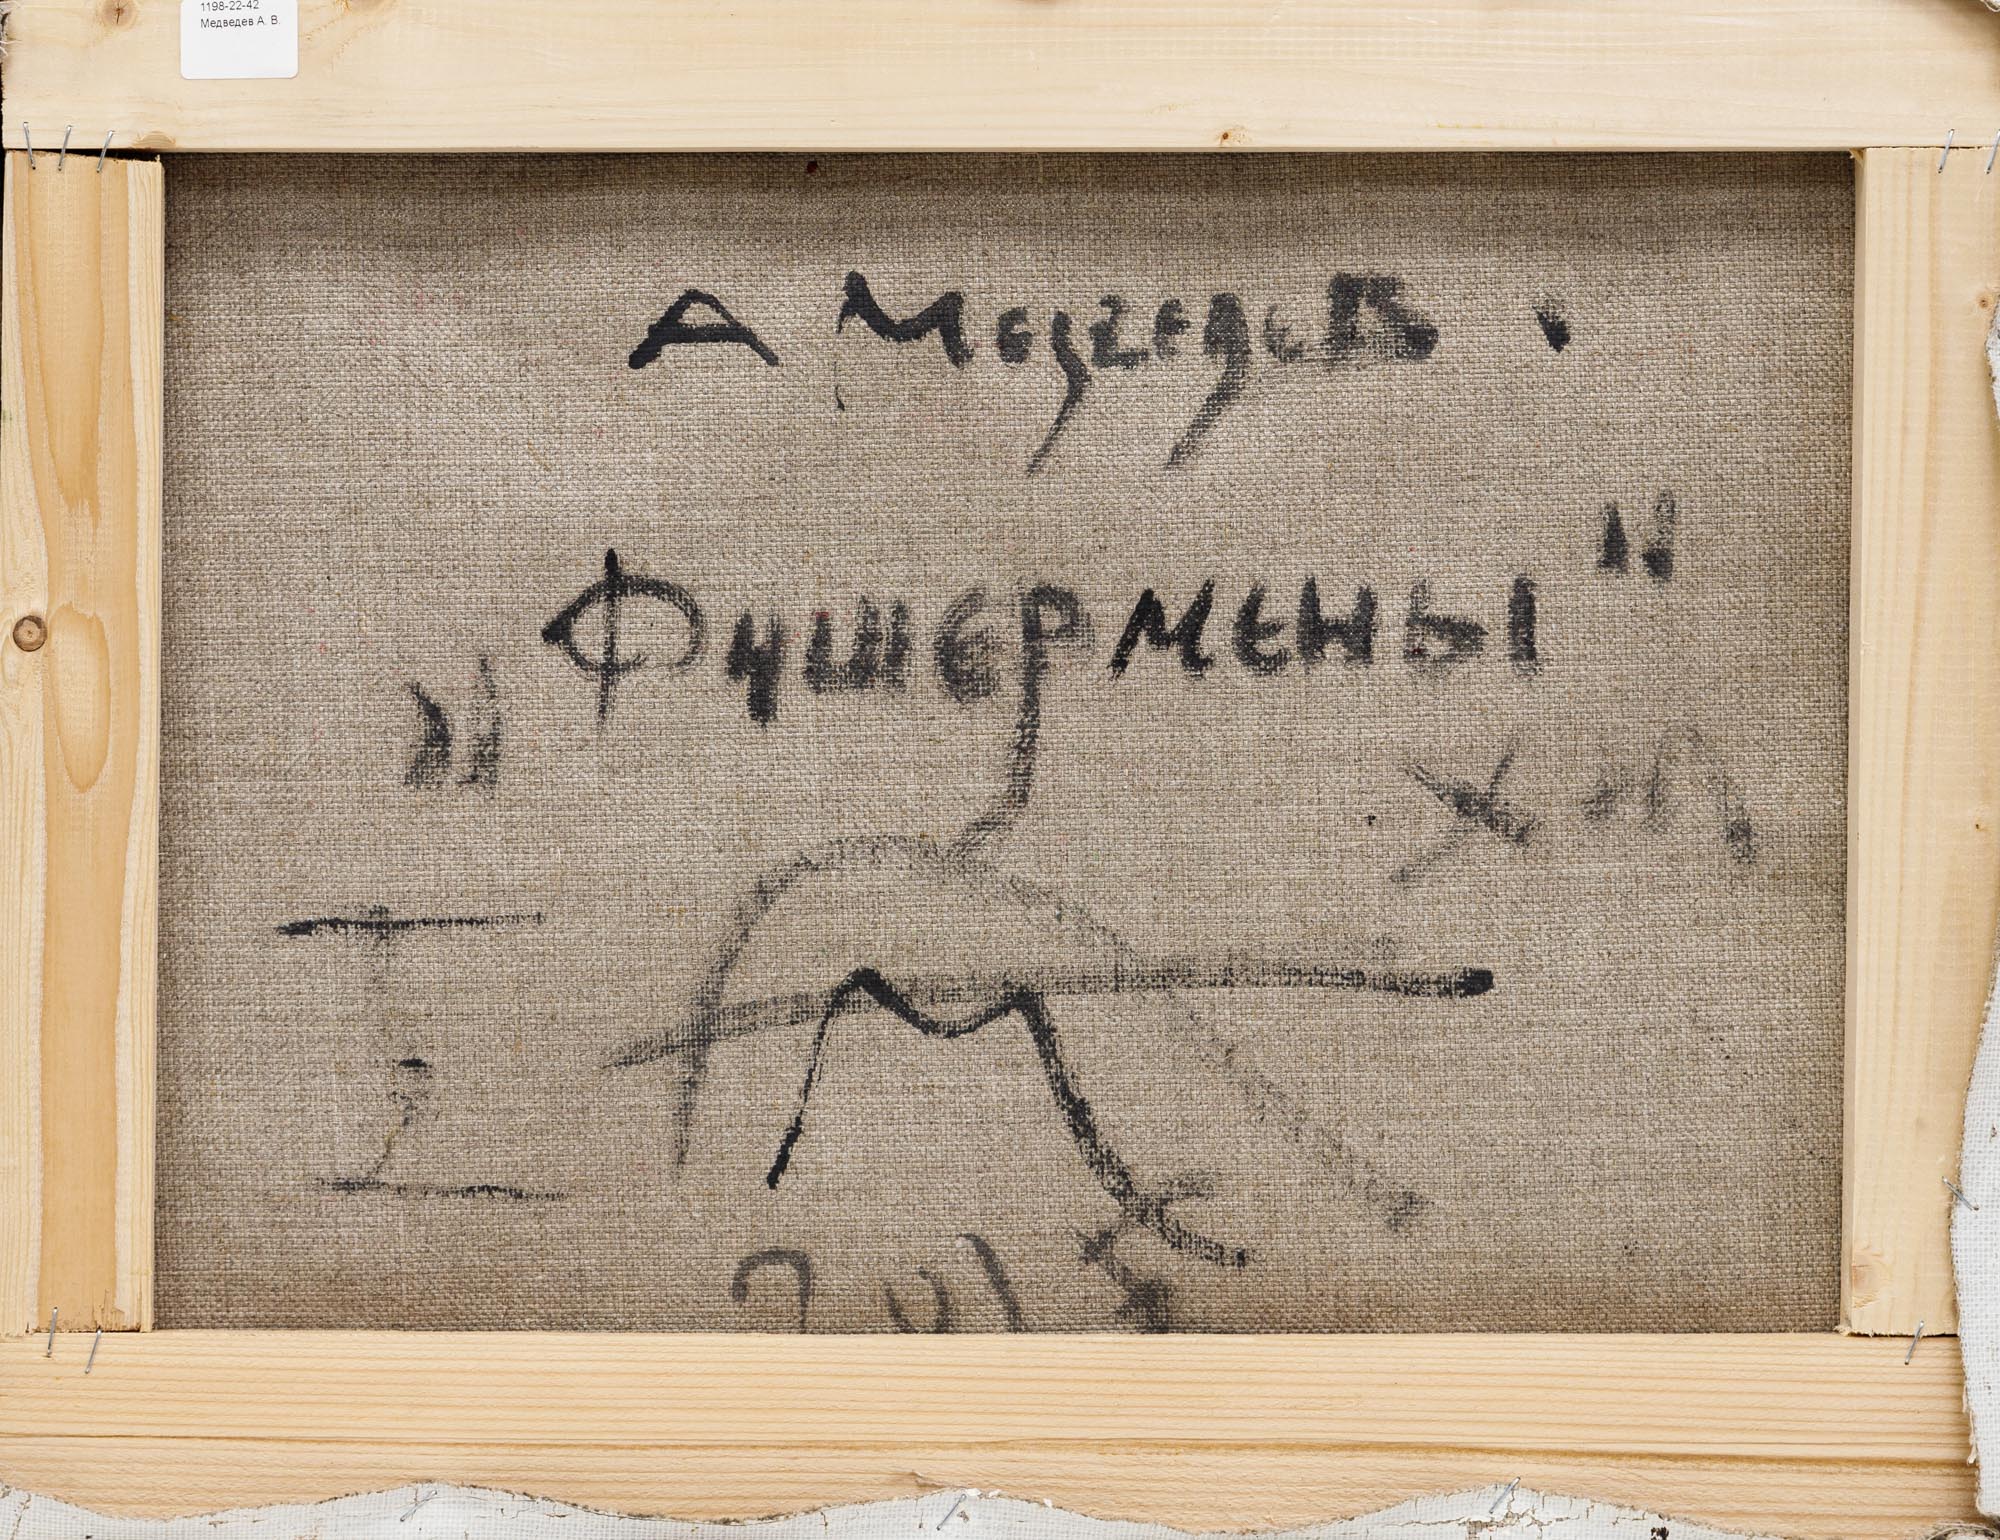 1198-22-42
Медведев А. В.
А Медведев.
„Фишермены"
х м
201